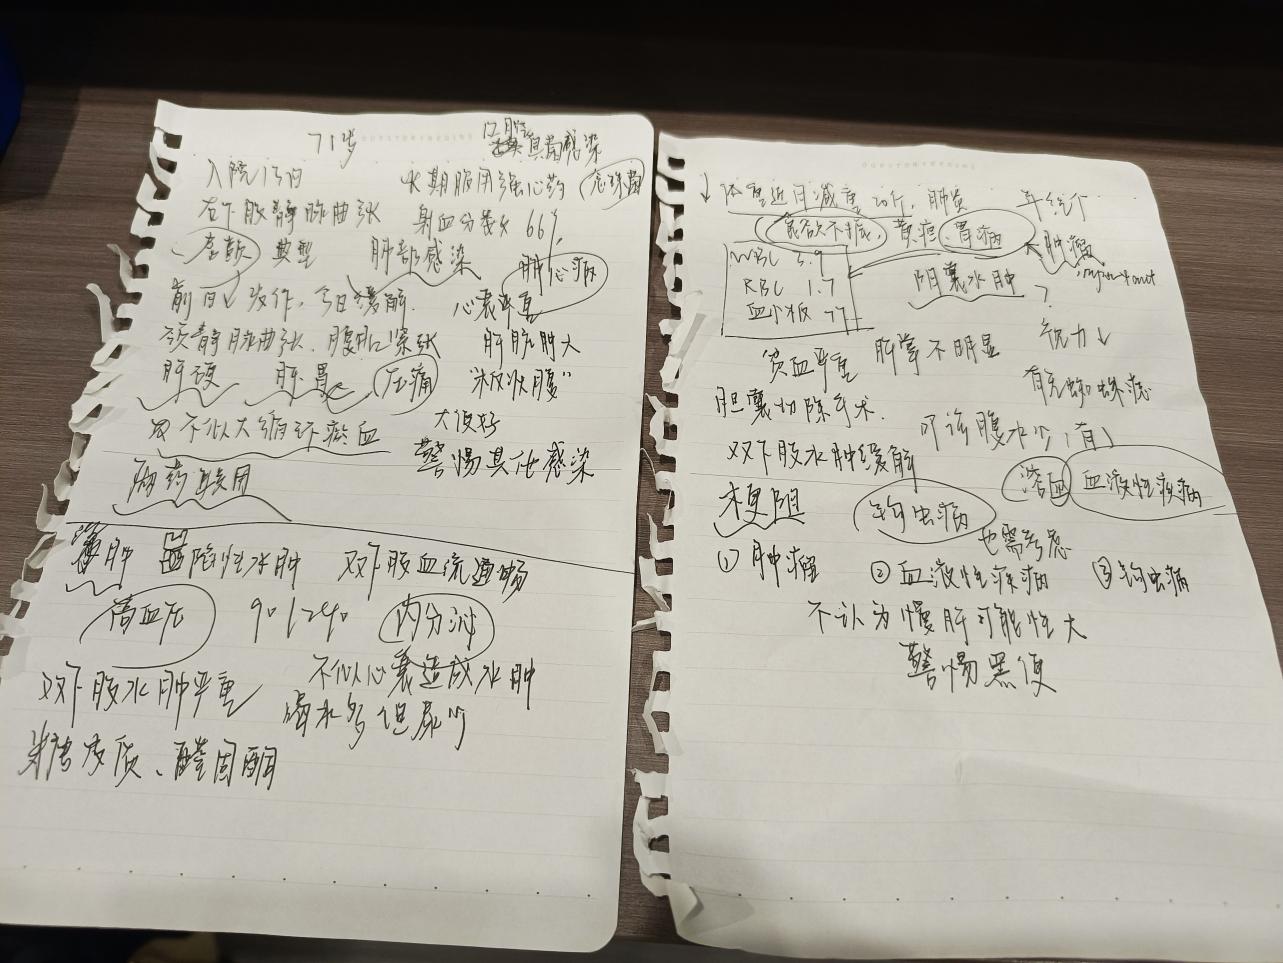 71岁 口腔真菌感染
入院1月 长期服用强心药 (念珠菌)
右下肢静脉曲张 射血分数 66%
典型 肺部感染 肺心病
前日↓发作,今日缓解. 心衰严重
颈静脉曲张、腹肌紧张 肝脏肿大
肝硬 压痛 "板状腹"
不似大循环淤血 大便好
警惕其他感染
两药联用
肿 凹陷性水肿 双下肢血流通畅
高血压 90/240 内分泌
双下肢水肿严重 不似心衰造成水肿
喝水多但尿少
糖皮质、醛固酮
↓体重近日减重20斤, 肺炎
食欲不振, 黄疸 胃病 肿瘤
WBC 3.9 阴囊水肿 ?
RBC 1.7
血小板 77
贫血严重 肝掌不明显 视力↓
有无蜘蛛痣
胆囊切除手术. 叩诊腹水少(有)
双下肢水肿缓解
梗阻 钩虫病 溶血 血液性疾病
也需考虑
① 肿瘤 ② 血液性疾病 ③ 钩虫病
不认为慢肝可能性大
警惕黑便